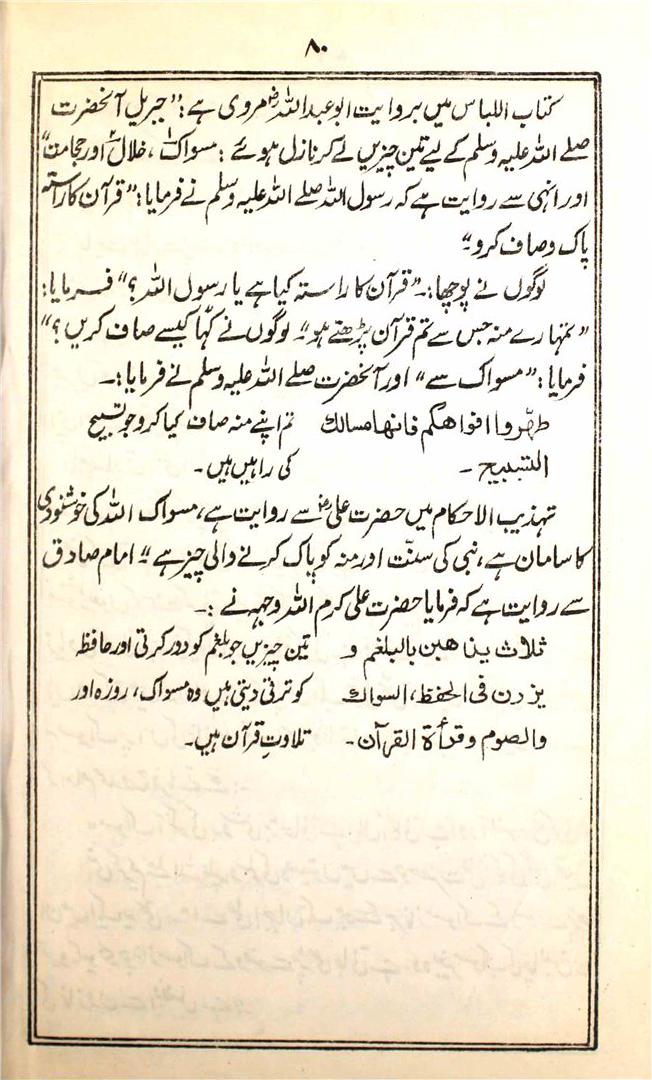 ۸۰
کتاب اللباس میں بروایت ابو عبداللہؓ مروی ہے: "جبریل آنحضرت
صلے اللہ علیہ وسلم کے لیے تین چیزیں لے کر نازل ہوئے: مسواک، خلال اور حجامت"
اور انہی سے روایت ہے کہ رسول اللہ صلے اللہ علیہ وسلم نے فرمایا: "قرآن کا راستہ
پاک وصاف کرو"
لوگوں نے پوچھا:۔ "قرآن کا راستہ کیا ہے یا رسول اللہ؟" فرمایا:
"تمہارے منہ جس سے تم قرآن پڑھتے ہو" لوگوں نے کہا کیسے صاف کریں؟"
فرمایا: "مسواک سے" اور آنحضرت صلے اللہ علیہ وسلم نے فرمایا:۔
طهّروا افواهكم فانها مسالك تم اپنے منہ صاف کیا کرو جو تسبیح
التسبيح ۔ کی راہیں ہیں۔
تہذیب الاحکام میں حضرت علیؓ سے روایت ہے، مسواک اللہ کی خوشنودی
کا سامان ہے، نبی کی سنّت اور منہ کو پاک کرنے والی چیز ہے" امام صادق
سے روایت ہے کہ فرمایا حضرت علی کرم اللہ وجہہ نے :۔
ثلاث يذهبن بالبلغم و تین چیزیں جو بلغم کو دور کرتی اور حافظہ
يزدن فى الحفظ، السواك کو ترقی دیتی ہیں وہ مسواک، روزہ اور
والصوم وقرأة القرآن۔ تلاوتِ قرآن ہیں۔